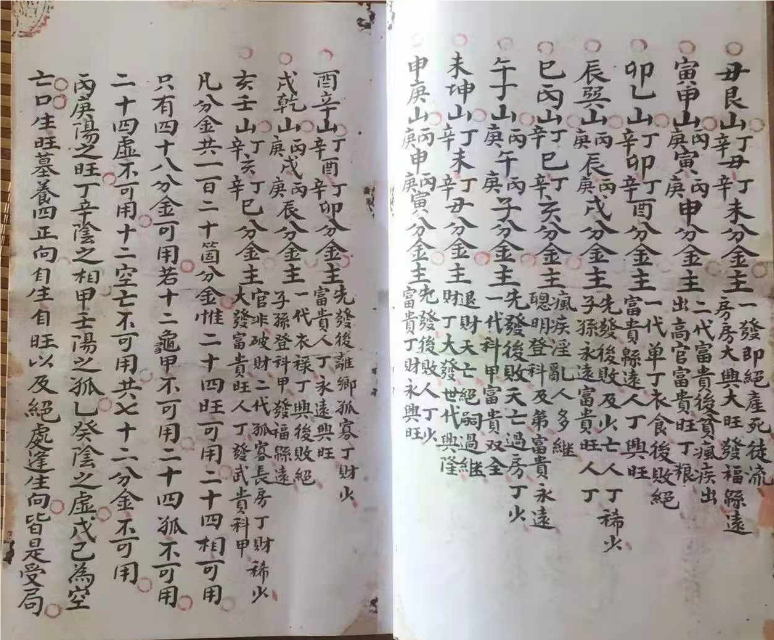 丑艮山丁辛丑丁辛未分金主一發即絕產死徒流
房房大興大旺發福綿遠
寅甲山丙庚寅丙庚申分金主二代富貴後貧瘋疾出
出高官富貴旺丁粮
卯乙山丁辛卯丁辛酉分金主一代单丁衣食後敗絕
富貴縣遠人丁興旺
辰巽山丙庚辰丙庚戌分金主先發後敗及少亡人丁稀少
子孫永遠富貴旺人丁
巳丙山丁辛巳丁辛亥分金主瘋疾淫亂人多継
聰明登科及第富貴永遠
午丁山丙庚午丙庚子分金主先發後敗夭亡過房丁少
一代科甲富貴双全
未坤山丁辛未丁辛丑分金主退財夭亡絕嗣過継
財丁大發世代興隆
申庚山丙庚申丙庚寅分金主先發後敗人丁少
富貴丁財永興旺
酉辛山丁辛酉丁辛卯分金主先發後離鄉孤寡丁財少
富貴人丁永遠興旺
戌乾山丙庚戌丙庚辰分金主一代衣禄丁興後敗絕
子孫登科甲發福縣遠
亥壬山丁辛亥丁辛巳分金主官非破財二代孤寡長房丁財稀少
大發富貴旺人丁發武貴科甲
凡分金共一百二十箇分金惟二十四旺可用二十四相可用
只有四十八分金可用若十二龜甲不可用二十四孤不可用
二十四虛不可用十二空亡不可用共七十二分金不可用
丙庚陽之旺丁辛陰之相甲壬陽之孤乙癸陰之虛戊己為空
亡口生旺墓養四正向自生自旺以及絕處逢生向皆是受局